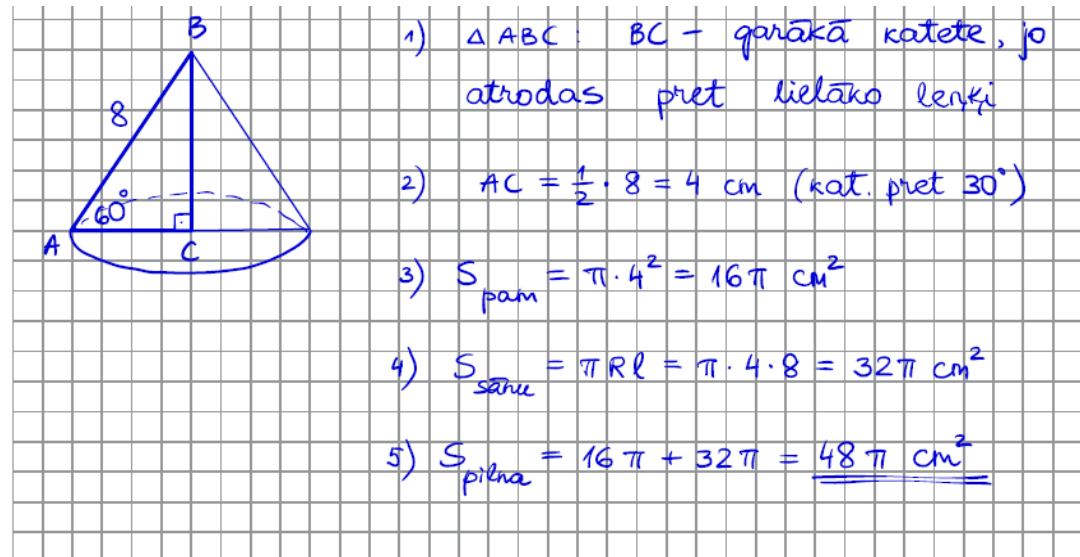 B
8
60°
A
C
1) △ ABC : BC – garākā katete, jo
atrodas pret lielāko leņķi
2) AC = 1/2 · 8 = 4 cm (kat. pret 30°)
3) S pam = π · 4² = 16π cm²
4) S sānu = πRl = π · 4 · 8 = 32π cm²
5) S pilna = 16π + 32π = 48π cm²